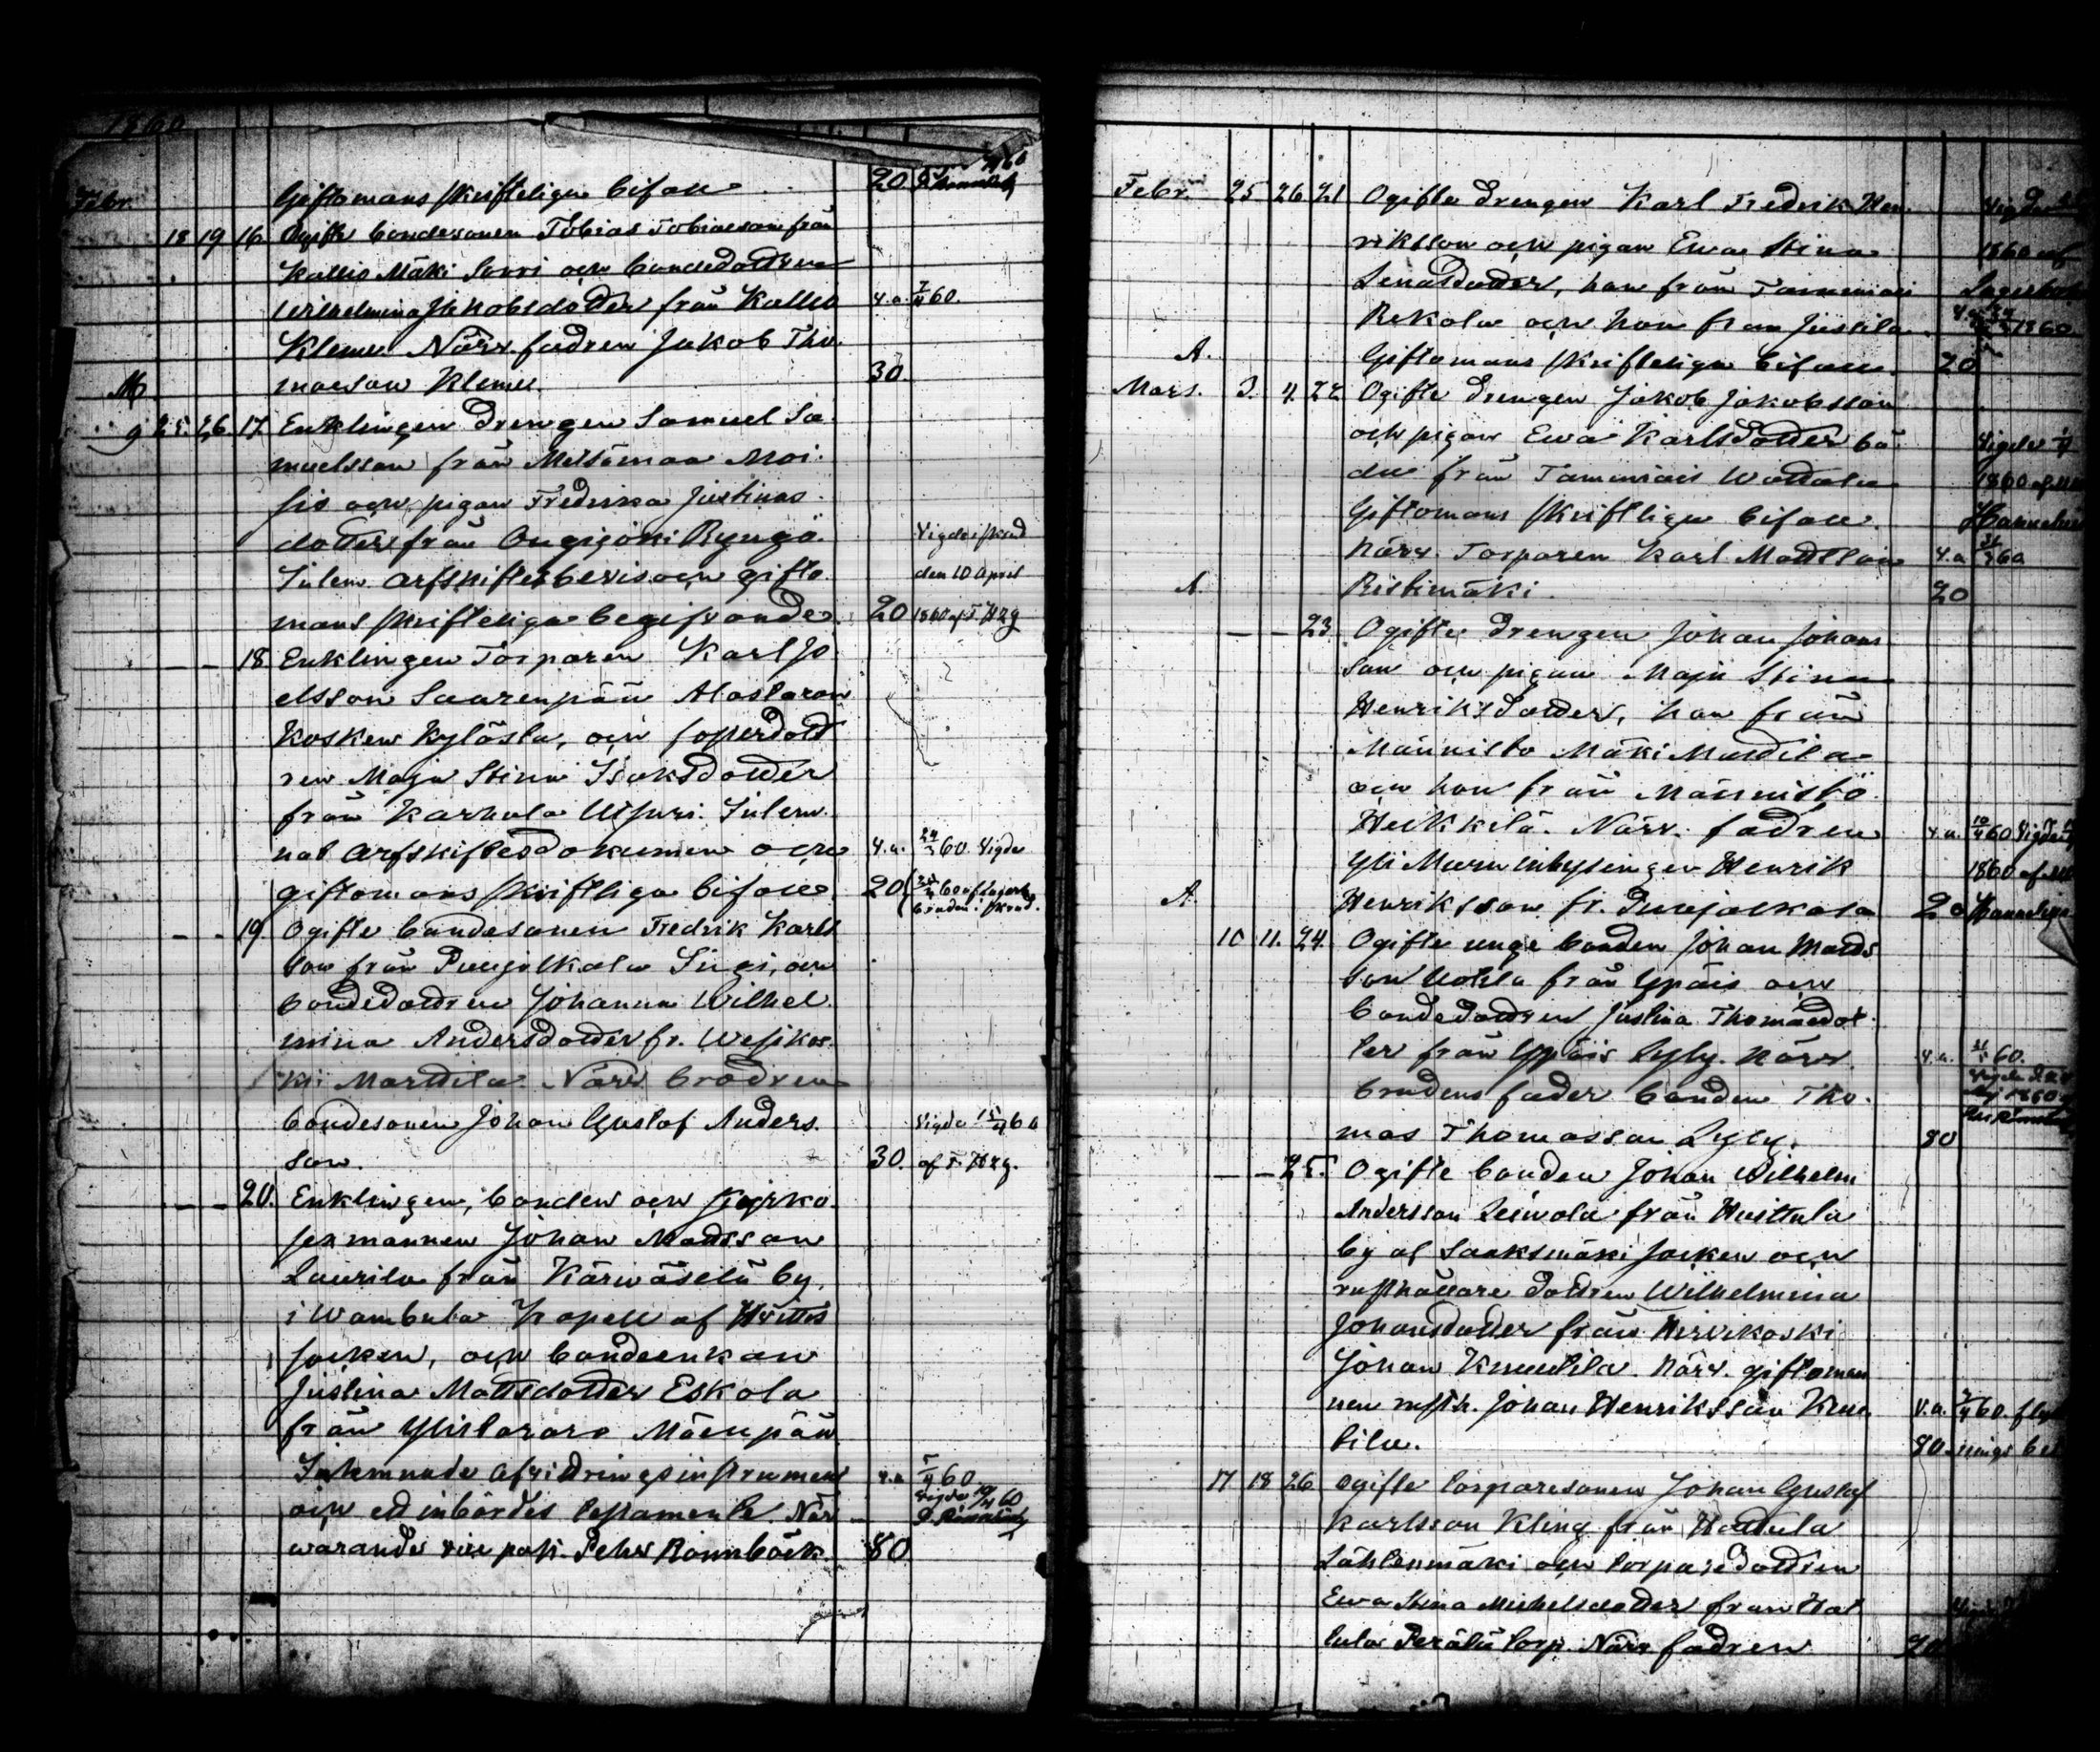 1860
Febr. Giftomans skriftliga bifall 20
18 19 16. Ogifte bondesonen Tobias Tobiasson från
Kallio Mäki Sorri och bondedottren
Wilhelmina Jakobsdotter från Kallio 4.a. 7/4 60.
Klemu Närv. fadren Jakob Tho-
M masson Klemu 30.
25. 26. 17. Enklingen Drengen Samuel Sa-
muelsson från Mesämaa Moi-
sio och pigan Fredrika Justinas-
dotter från Ougijoki Ryngö. Vigda i Skrud
Inlem. arfskiftesbevis och gifto- den 10 April
mans skriftliga begifvande. 20 1860 af F. Hzg
– – 18 Enklingen Torparen Karl Jo-
elsson Saarenpää Alastaron
Kosken Kylästa, och soperdott
ren Maja Stina Isaksdotter
från Karhula Uipuri. Inlem-
nat arfskiftesdokumen och 4.a. 24/3 60. Vigde
giftomans skriftliga bifall. 20 60 af Lagerb.
bruden i skrud.
– – 19 Ogifte bondesonen Fredrik Karls
son från Punjolkala Sugi, och
bondedottren Johanna Wilhel-
mina Andersdotter fr. Wesikos-
ki Marttila. Närv. brodren
bondesonen Johan Gustaf Anders- Vigda 15/4 60
son. 30. af F. Hzg.
– – 20. Enklingen, bonden och kyrko-
sexmannen Johan Mattsson
Laurila från Kärwäselä by,
i Wambula kapell af Hvittis
socken, och bondeenkan
Justina Mattsdotter Eskola
från Ylistaro Mäenpää.
Inlemnade afvittringsinstrument 4.a. 5/4 60.
och ett inbördes testamente. När- Vigda 10/4 60
warande vice past. Pehr Rönnbäck. 80.
Febr. 25 26 21 Ogifte Drengen Karl Fredrik Hen- Vigde
riksson och pigan Ewa Stina 1860 af
Lenasdotter, han från Tammiais
Rekola och hon från Jussila. 1860
A. Giftomans skriftliga bifall. 20
Mars. 3. 4. 22. Ogifte Drengen Jakob Jakobsson
och pigan Ewa Karlsdotter bå- Vigde
de från Tammiais Wattala 1860 af
Giftomans skriftliga bifall.
Närv. Torparen Karl Mattsson 4.a 60
A. Ristimäki. 20
– – 23. Ogifte Drengen Johan Johans
son och pigan Maja Stina
Henriksdotter, han från
Männistö Mäki Marttila
och hon från Männistö
Heikkilä. Närv. fadren 4.a. 10/4 60 Vigde
Yli Muru inhysingen Henrik 1860 af
A. Henriksson fr. Punjolkala 20
10 11. 24. Ogifte unge bonden Johan Matts
son Uotila från Ypäis och
bondedottren Justina Thomasdot-
ter från Ypäis Lyly. Närv. 4.a. 60.
brudens fader bonden Tho-
mas Thomasson Lyly. 80
– – 25. Ogifte bonden Johan Wilhelm
Andersson Leiwola från Huittula
by af Sääksmäki socken och
rusthållare dottren Wilhelmina
Johansdotter från Hirvikoski
Johan Knuutila. Närv. giftoman
nen rusth. Johan Henriksson Knuu 4.a. 60.
tila. 80.
17 18 26 Ogifte torparesonen Johan Gustaf
Karlsson Kling från Hattula
Lähteenmäki och torparedottren
Ewa Stina Michelsdotter från Hat
tula Perälä torp. Närv. fadren